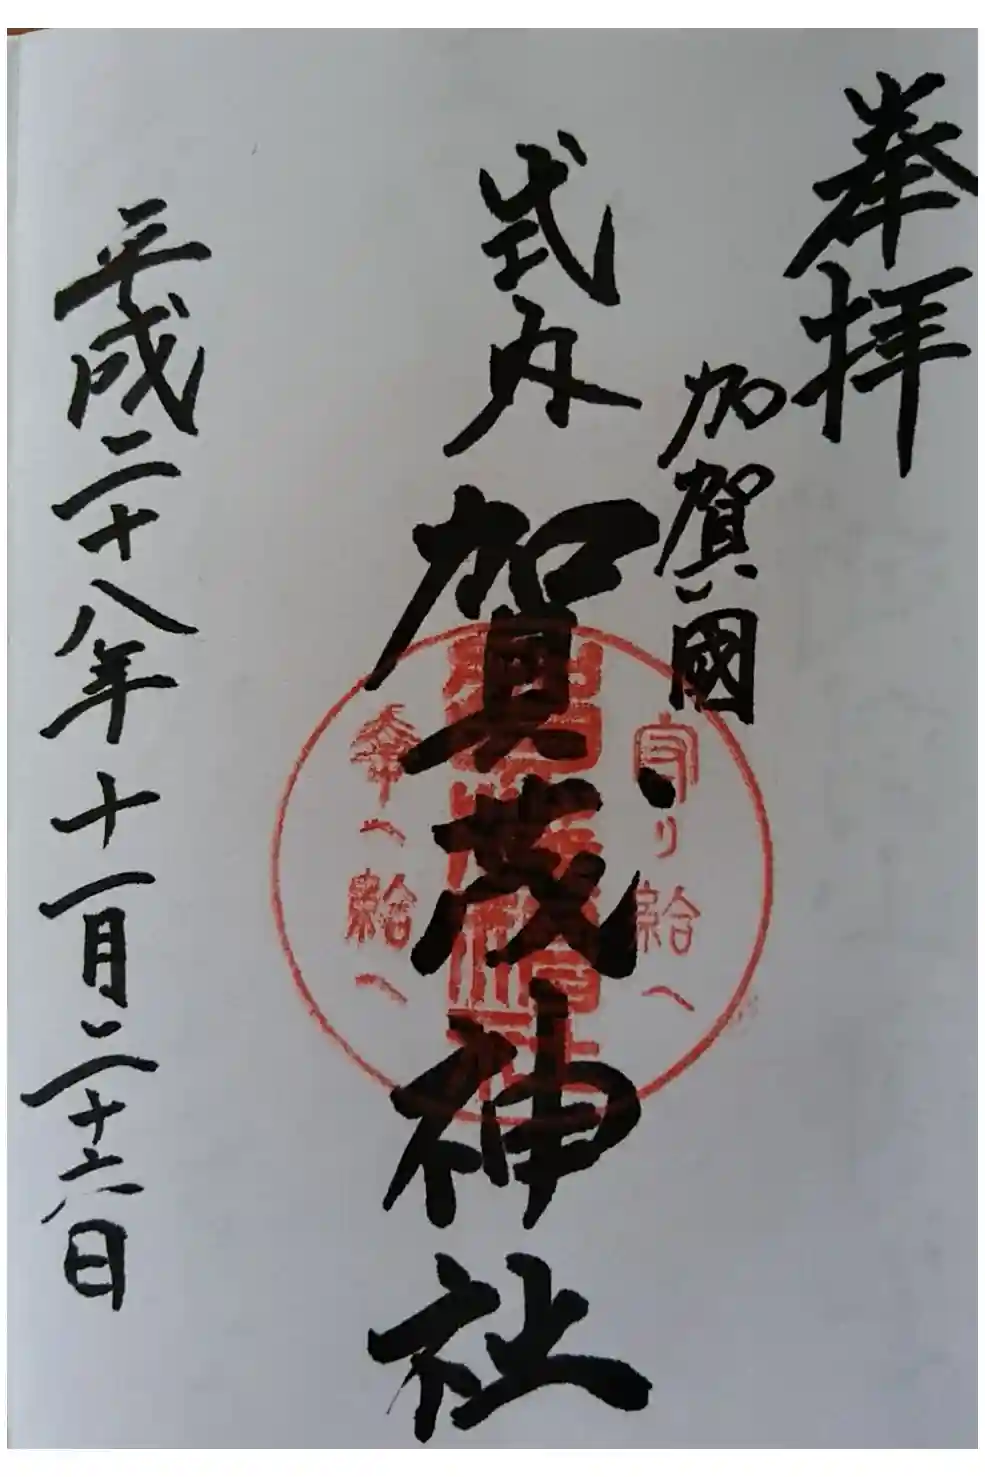 奉拝
加賀國
式内
賀茂神社
平成二十八年十一月二十六日
守り給へ
幸へ給へ